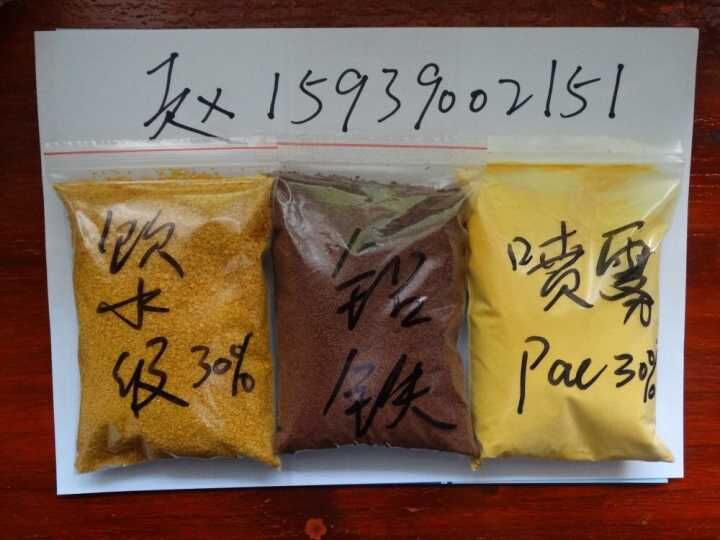 赵 15939002151
饮水级 30%
铝铁
喷雾
Pac 30%